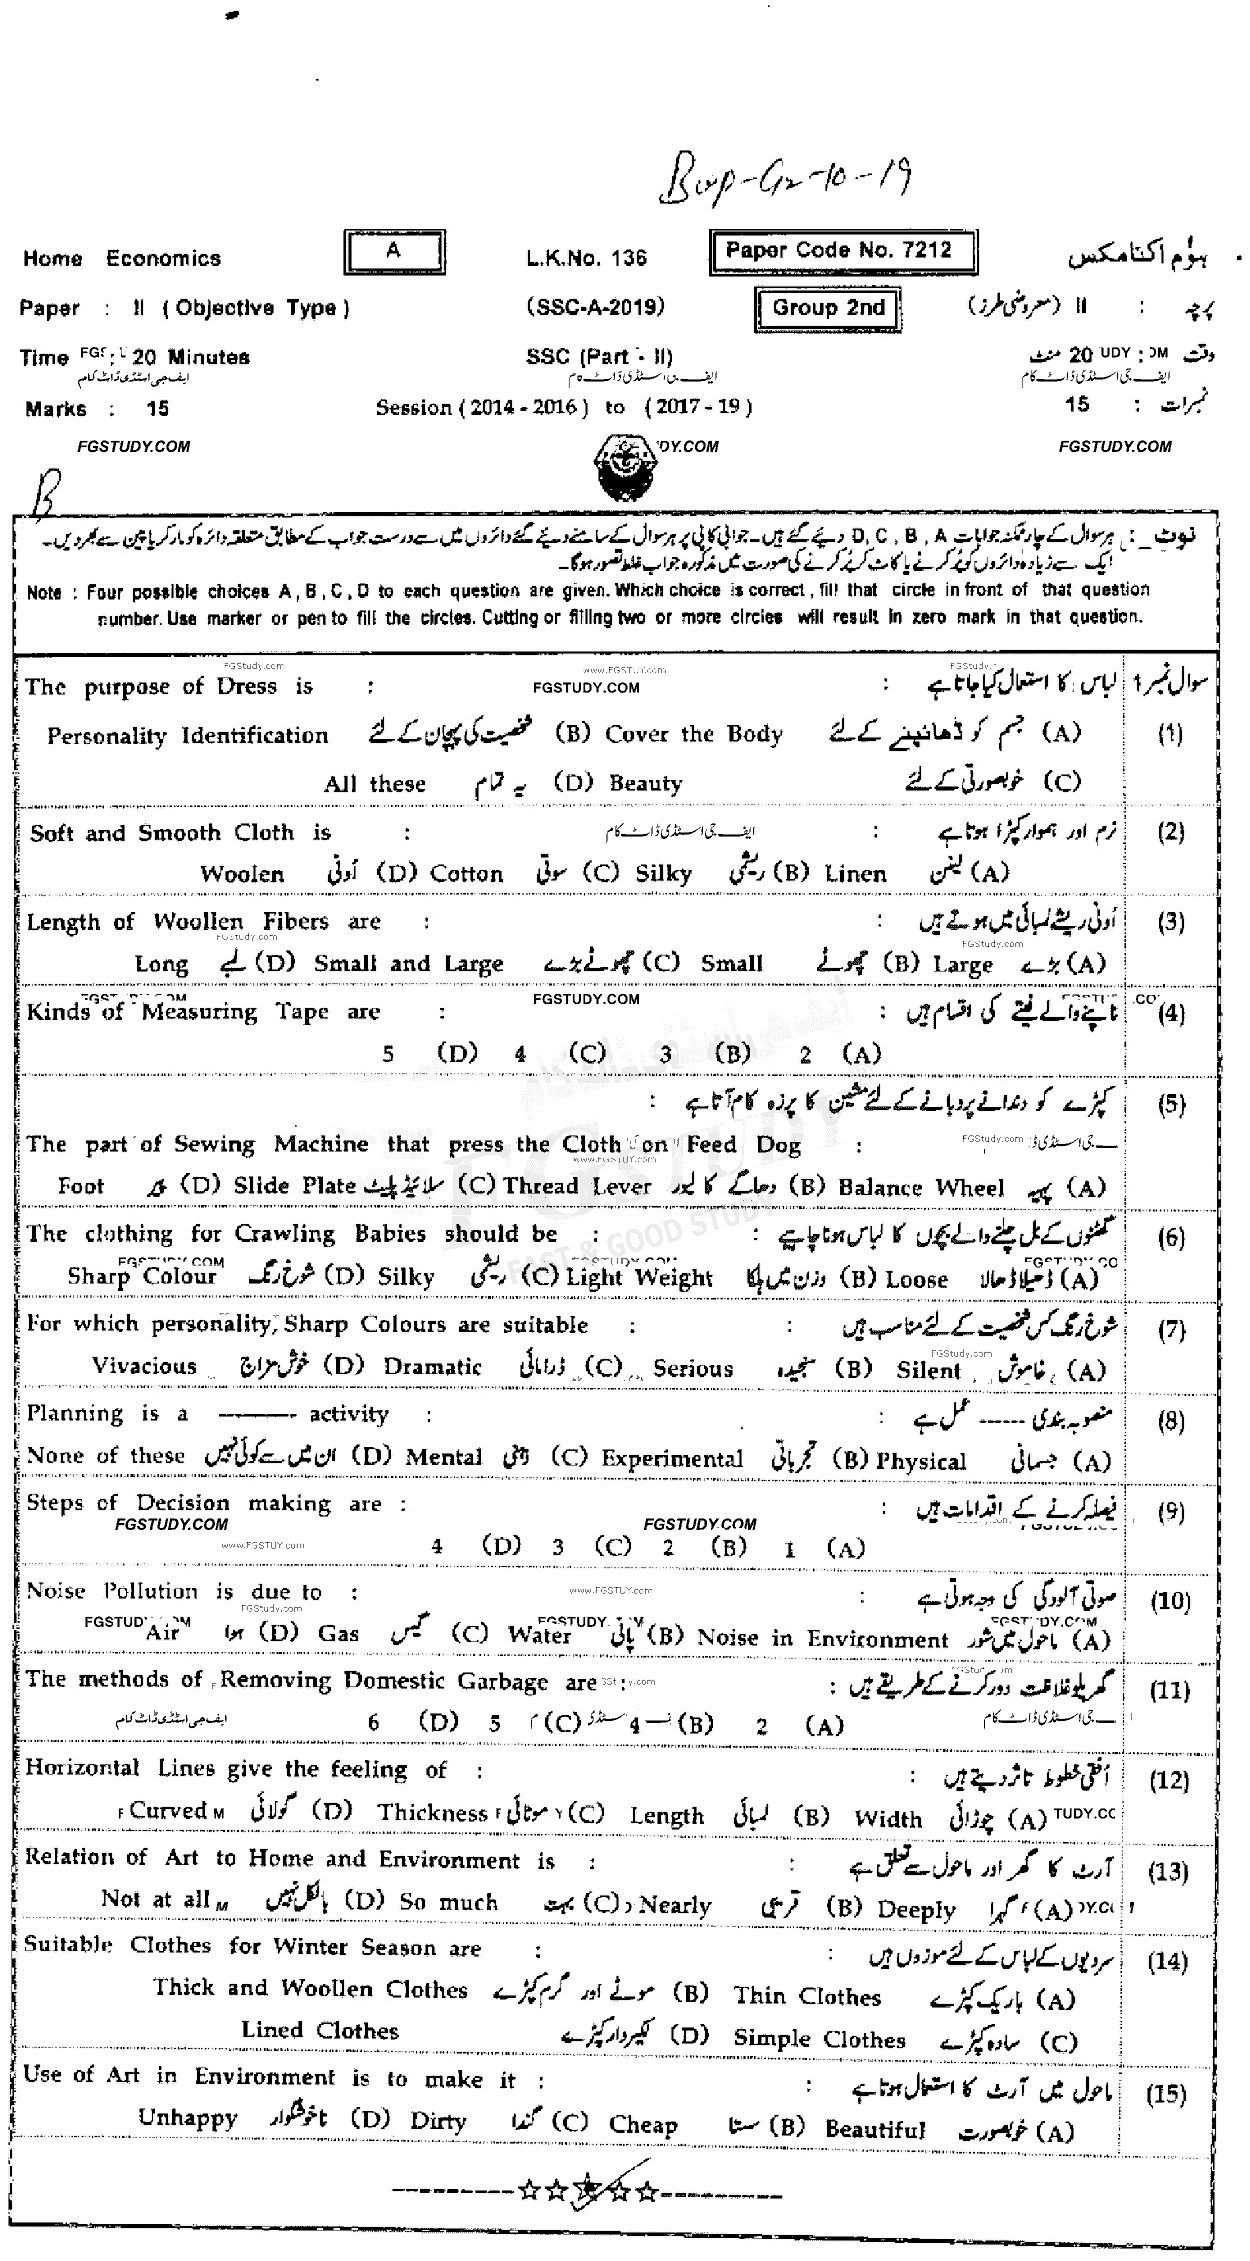 Bwp-G2-10-19
Home Economics A L.K.No. 136 Paper Code No. 7212 ہوم اکنامکس
Paper : II ( Objective Type ) (SSC-A-2019) Group 2nd پرچہ : II (معروضی طرز)
Time : 20 Minutes SSC (Part - II) وقت : 20 منٹ
ایف جی اسٹڈی ڈاٹ کام ایف جی اسٹڈی ڈاٹ کام ایف جی اسٹڈی ڈاٹ کام
Marks : 15 Session ( 2014 - 2016 ) to ( 2017 - 19 ) نمبرات : 15
FGSTUDY.COM DY.COM FGSTUDY.COM
B
نوٹ : ہر سوال کے چار ممکنہ جوابات D , C , B , A دیئے گئے ہیں۔ جوابی کاپی پر ہر سوال کے سامنے دیئے گئے دائروں میں سے درست جواب کے مطابق متعلقہ دائرہ کو مارکر یا پین سے بھر دیں۔
ایک سے زیادہ دائروں کو پُر کرنے یا کاٹ کر پُر کرنے کی صورت میں مذکورہ جواب غلط تصور ہوگا۔
Note : Four possible choices A , B , C , D to each question are given. Which choice is correct , fill that circle in front of that question
number. Use marker or pen to fill the circles. Cutting or filling two or more circles will result in zero mark in that question.
FGStudy.com www.FGSTUY.com
The purpose of Dress is : FGSTUDY.COM : لباس کا استعمال کیا جاتا ہے سوال نمبر 1
Personality Identification شخصیت کی پہچان کے لئے (B) Cover the Body جسم کو ڈھانپنے کے لئے (A) (1)
All these یہ تمام (D) Beauty خوبصورتی کے لئے (C)
Soft and Smooth Cloth is : ایف جی اسٹڈی ڈاٹ کام : نرم اور ہموار کپڑا ہوتا ہے (2)
Woolen اُونی (D) Cotton سوتی (C) Silky ریشمی (B) Linen لینن (A)
Length of Woollen Fibers are : : اُونی ریشے لمبائی میں ہوتے ہیں (3)
FGStudy.com FGStudy.com
Long لمبے (D) Small and Large چھوٹے بڑے (C) Small چھوٹے (B) Large بڑے (A)
Kinds of Measuring Tape are : FGSTUDY.COM : ناپنے والے فیتے کی اقسام ہیں (4)
5 (D) 4 (C) 3 (B) 2 (A)
: کپڑے کو دندانے پر دبانے کے لئے مشین کا پرزہ کام آتا ہے (5)
The part of Sewing Machine that press the Cloth on Feed Dog : FGStudy.com
www.FGSTUY.com
Foot پیر (D) Slide Plate سلائیڈ پلیٹ (C) Thread Lever دھاگے کا لیور (B) Balance Wheel پہیہ (A)
FGSTUDY
FAST & GOOD STUDY
The clothing for Crawling Babies should be : : گھٹنوں کے بل چلنے والے بچوں کا لباس ہونا چاہیے (6)
Sharp Colour شوخ رنگ (D) Silky ریشمی (C) Light Weight وزن میں ہلکا (B) Loose ڈھیلا ڈھالا (A)
For which personality, Sharp Colours are suitable : : شوخ رنگ کس شخصیت کے لئے مناسب ہیں (7)
FGStudy.com
Vivacious خوش مزاج (D) Dramatic ڈرامائی (C) Serious سنجیدہ (B) Silent خاموش (A)
Planning is a ——— activity : : منصوبہ بندی ------ عمل ہے (8)
None of these ان میں سے کوئی نہیں (D) Mental ذہنی (C) Experimental تجرباتی (B) Physical جسمانی (A)
Steps of Decision making are : : فیصلہ کرنے کے اقدامات ہیں (9)
FGSTUDY.COM FGSTUDY.COM
www.FGSTUY.com 4 (D) 3 (C) 2 (B) 1 (A)
Noise Pollution is due to : www.FGSTUY.com : صوتی آلودگی کی وجہ ہوتی ہے (10)
FGStudy.com
Air ہوا (D) Gas گیس (C) Water پانی (B) Noise in Environment ماحول میں شور (A)
The methods of Removing Domestic Garbage are : : گھریلو غلاظت دور کرنے کے طریقے ہیں (11)
ایف جی اسٹڈی ڈاٹ کام 6 (D) 5 (C) 4 (B) 2 (A)
Horizontal Lines give the feeling of : : اُفقی خطوط تاثر دیتے ہیں (12)
Curved گولائی (D) Thickness موٹائی (C) Length لمبائی (B) Width چوڑائی (A)
Relation of Art to Home and Environment is : : آرٹ کا گھر اور ماحول سے تعلق ہے (13)
Not at all بالکل نہیں (D) So much بہت (C) Nearly قریبی (B) Deeply گہرا (A)
Suitable Clothes for Winter Season are : : سردیوں کے لباس کے لئے موزوں ہیں (14)
Thick and Woollen Clothes موٹے اور گرم کپڑے (B) Thin Clothes باریک کپڑے (A)
Lined Clothes لکیردار کپڑے (D) Simple Clothes سادہ کپڑے (C)
Use of Art in Environment is to make it : : ماحول میں آرٹ کا استعمال ہوتا ہے (15)
Unhappy ناخوشگوار (D) Dirty گندا (C) Cheap سستا (B) Beautiful خوبصورت (A)